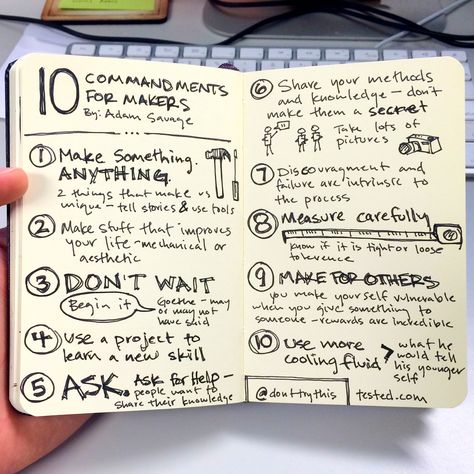 10 COMMANDMENTS
FOR MAKERS
By: Adam Savage
1 Make something.
ANYTHING.
2 things that make us
unique - tell stories & use tools
2 Make stuff that improves
your life - mechanical or
aesthetic
3 DON'T WAIT
Begin it
Goethe - may
or may not
have said
4 Use a project to
learn a new skill
5 ASK. Ask for Help -
people want to
share their knowledge
6 Share your methods
and knowledge - don't
make them a secret
Take lots of
pictures
7 Discouragment and
failure are intrinsic to
the process
8 Measure carefully
Know if it is tight or loose
tolerence
9 MAKE FOR OTHERS
you make yourself vulnerable
when you give something to
someone - rewards are incredible
10 Use more
cooling fluid
> what he
would tell
his younger
self
@donttrythis tested.com